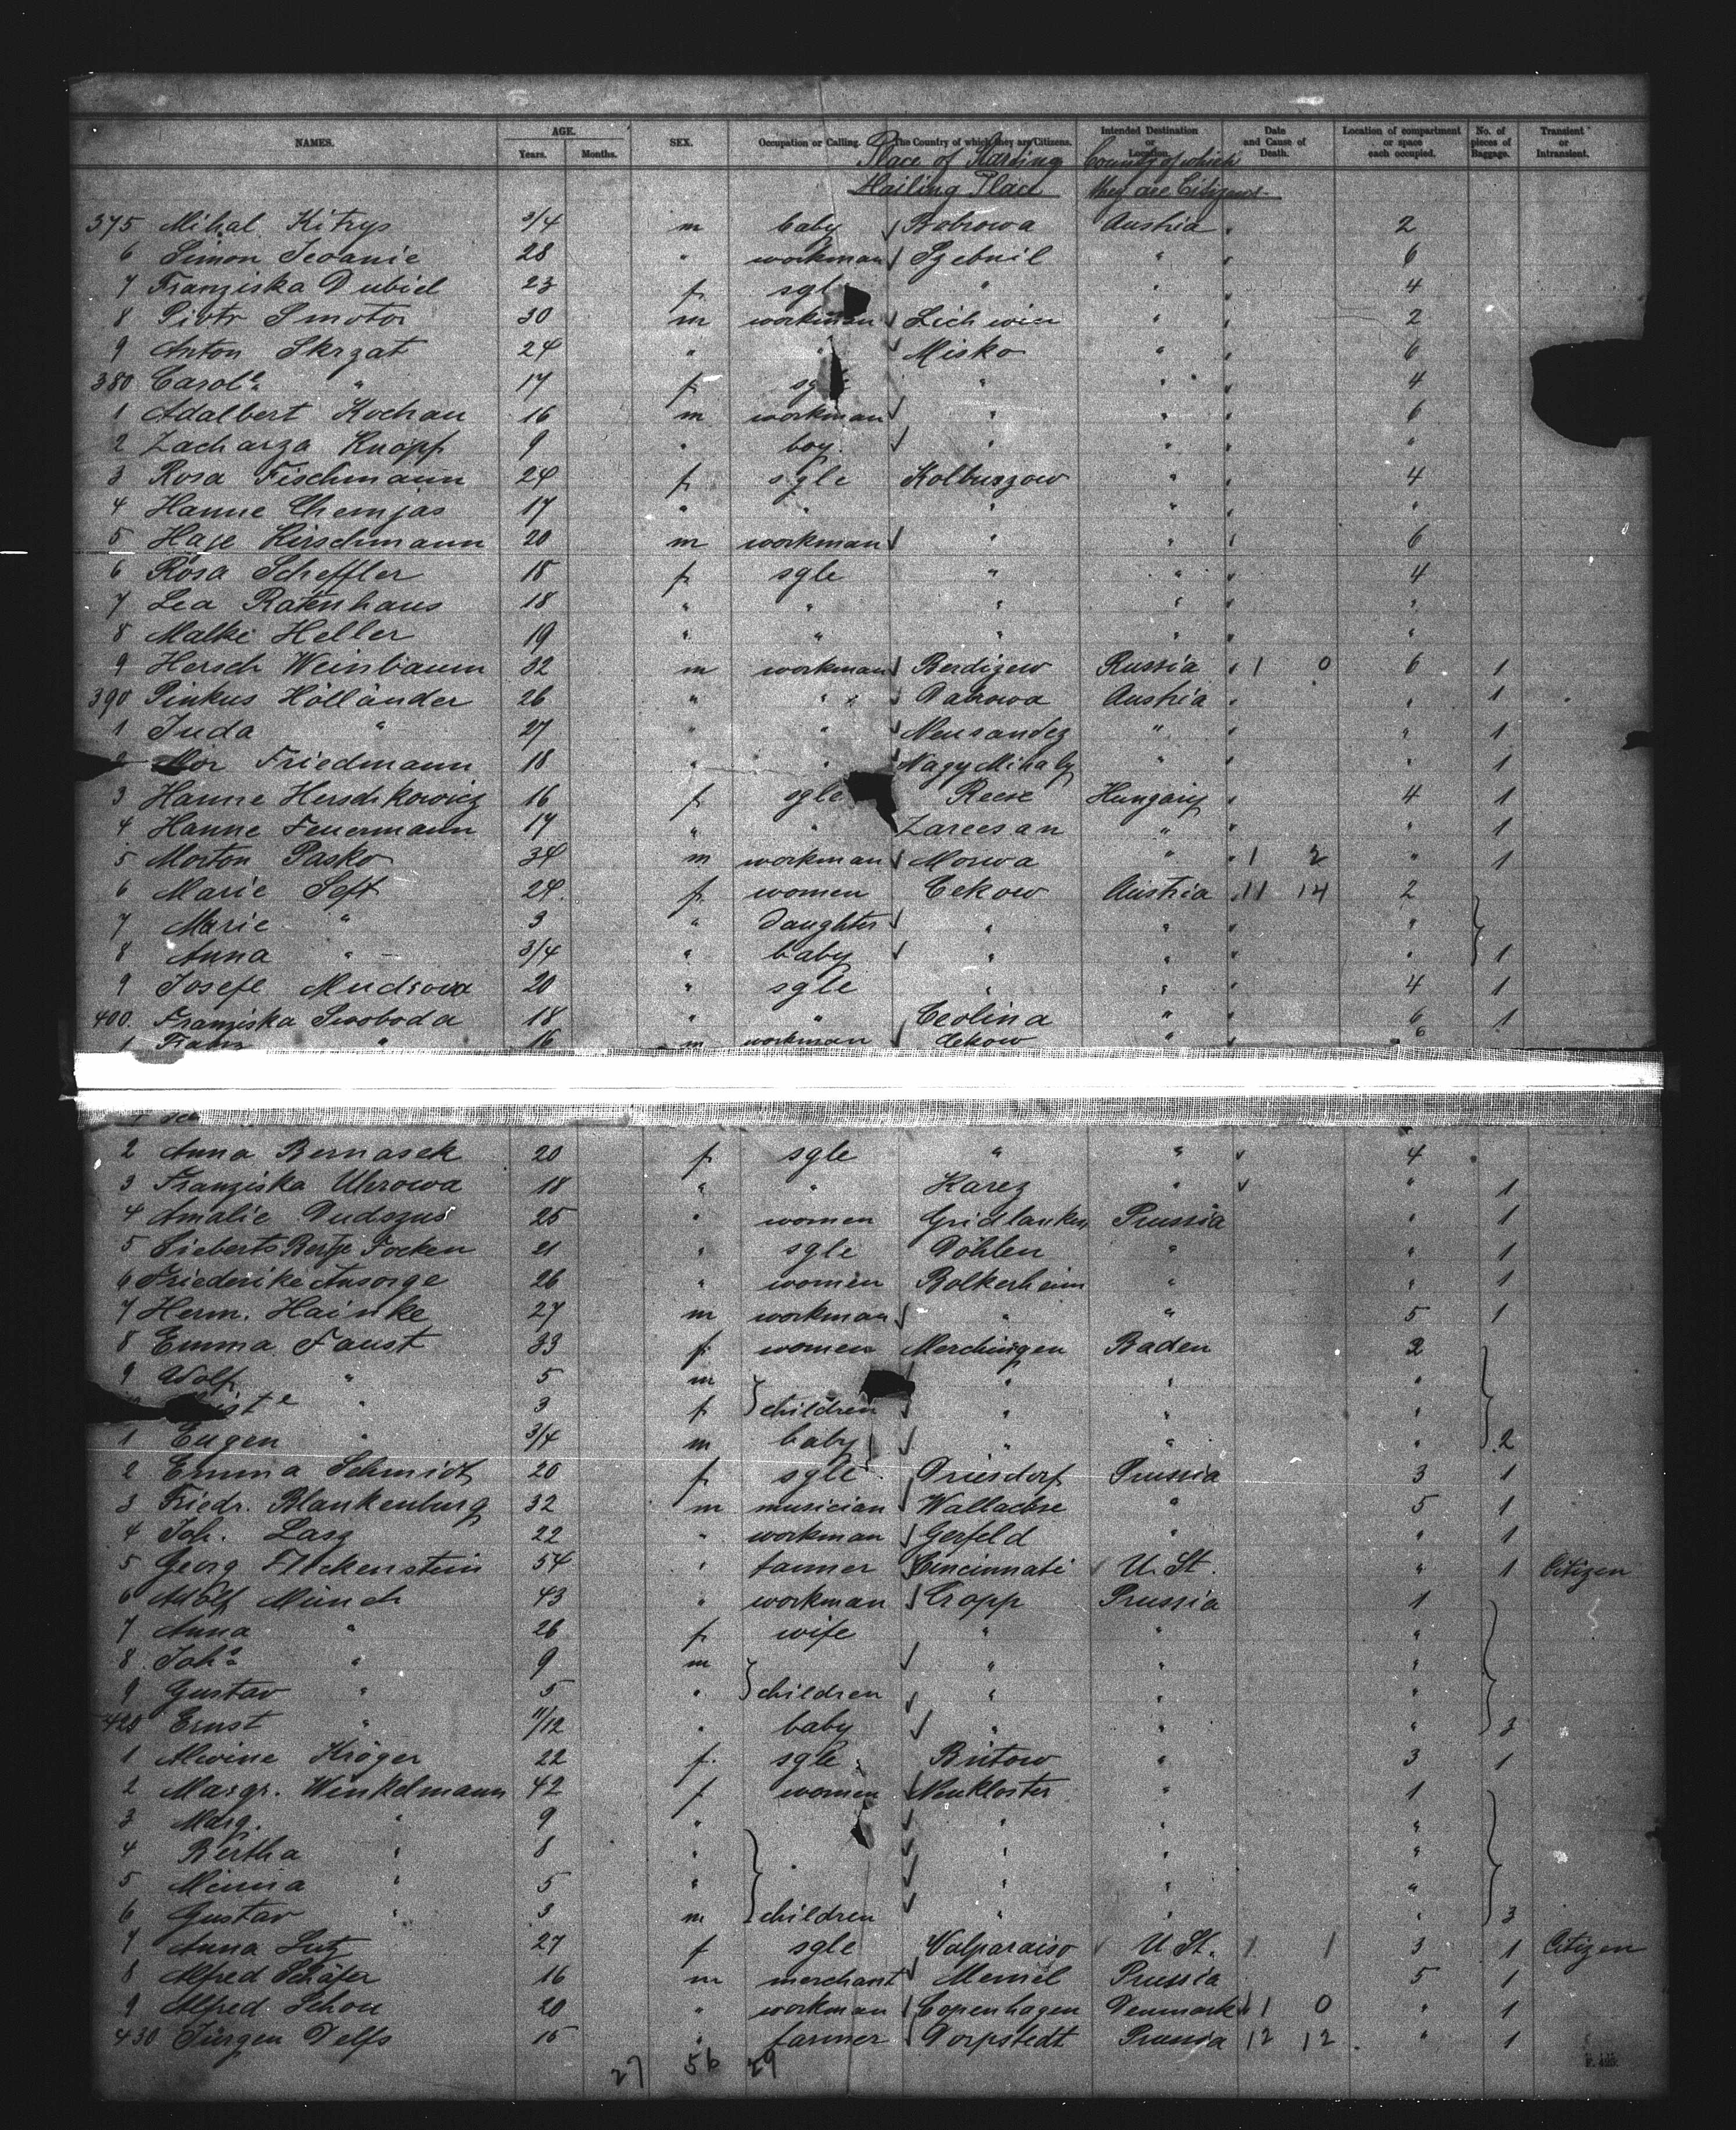 NAMES. AGE. Years. Months. SEX. Occupation or Calling. The Country of which they are Citizens. Intended Destination or Location. Date and Cause of Death. Location of compartment or space each occupied. No. of pieces of Baggage. Transient or Intransient.
Place of Hailing Place Country of which they are Citizens.
375 Mihal Kitrys 3/4 m baby Bobrowa Austria 2
6 Simon 28 " workman " " 6
7 Franziska Dubiel 23 f sgle " " 4
8 Piotr Smotor 30 m workman Lichwin " 2
9 Anton Skrzat 24 " " Misko " 6
380 Carola " 17 f sgle " " 4
1 Adalbert Kochan 16 m workman " " 6
2 Zacharza Knopf 9 " boy " " "
3 Rosa Fischmann 24 f sgle Kolbuszow " 4
4 Hanne Chemjas 17 " " " " "
5 Haje Hirschmann 20 m workman " " 6
6 Rosa Scheffler 18 f sgle " " 4
7 Lea Ratenhaus 18 " " " " "
8 Malke Heller 19 " " " " "
9 Hersch Weinbaum 32 m workman Berdizew Russia 1 0 6 1
390 Pinkus Holländer 26 " " Dabrowa Austria " 1
1 Juda " 27 " " Neusandez " " 1
2 Mor Friedmann 18 " " Nagy Mihaly " " 1
3 Hanne Herschkowicz 16 f sgle Reese Hungary 4 1
4 Hanne Feuermann 17 " " " " 1
5 Morton Pasko 34 m workman Morwa " 1 2 " 1
6 Marie Seft 24 f women Cekow Austria 11 14 2
7 Marie " 3 " daughter " " "
8 Anna " 3/4 " baby " " " 1
9 Josefe Mudrova 20 " sgle " " 4 1
400 Franziska Swoboda 18 " " Ceolina " 6 1
1 Franz " 16 m workman Cekow " 6
2 Anna Bernasek 20 f sgle " " 4
3 Franziska Uhrowa 18 " " Karez " " 1
4 Amalie Dudszus 25 " women Gridlauken Prussia " 1
5 Sieberts Focken 21 " sgle Döhlen " " 1
6 Friederike Ansorge 26 " women Bolkerheim " " 1
7 Herm. Hainke 27 m workman " " 5 1
8 Emma Faust 33 f women Merchingen Baden 2
9 Wolf " 5 m " " "
" 3 f children " " "
1 Eugen " 3/4 m baby " " " 2
2 Emma Schmidt 20 f sgle Driesdorf Prussia 3 1
3 Friedr. Blankenburg 32 m musician Wallachse " 5 1
4 Joh. Lasz 22 " workman Gerfeld " " 1
5 Georg Fleckenstein 54 " tanner Cincinnati U. St. " 1 Citizen
6 Adolf Münch 43 " workman Cropp Prussia 1
7 Anna " 26 f wife " " "
8 Joha " 9 m " " "
9 Gustav " 5 " children " " "
420 Ernst " 11/12 " baby " " " 3
1 Alwine Kröger 22 f. sgle Bütow " 3 1
2 Margr. Winkelmann 42 f women Neukloster " 1
3 Marg. " 9 " " " "
4 Bertha " 8 " " " "
5 Minna " 5 " " " "
6 Gustav " 3 m children " " " 3
7 Anna Lutz 27 f sgle Valparaiso U St. 1 1 3 1 Citizen
8 Alfred Schäfer 16 m merchant Memel Prussia 5 1
9 Alfred Schou 20 " workman Copenhagen Denmark 1 0 " 1
430 Jürgen Delfs 15 " farmer Dorpstedt Prussia 12 12 " 1
27 56 29